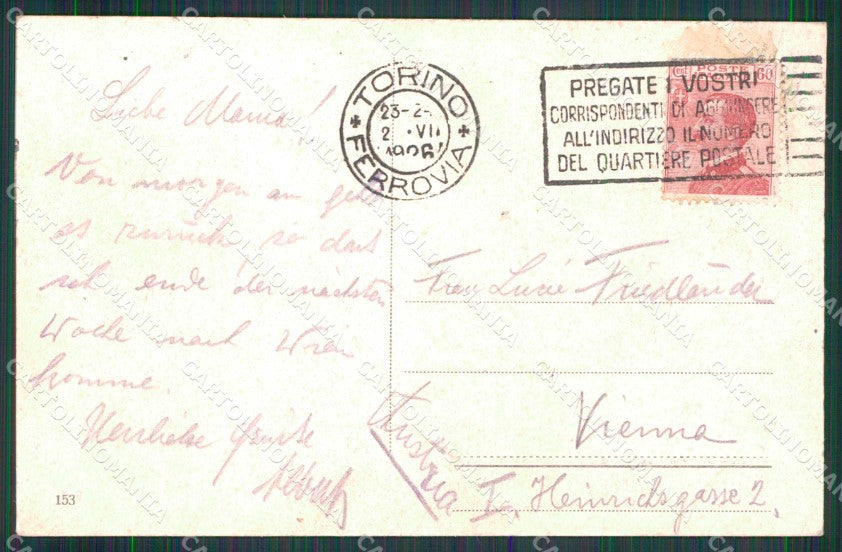 Liebe Mama!
Von morgen an geht
es zurück, so dass
ich ende der nächsten
Woche nach Wien
komme.
Herzliche Grüsse
153
TORINO
23-24
VII
1926
FERROVIA
PREGATE I VOSTRI
CORRISPONDENTI DI AGGIUNGERE
ALL'INDIRIZZO IL NUMERO
DEL QUARTIERE POSTALE
POSTE
60
Frau Lucie Friedländer
Vienna
Austria
I. Heinrichsgasse 2.
CARTOLINOMANIA